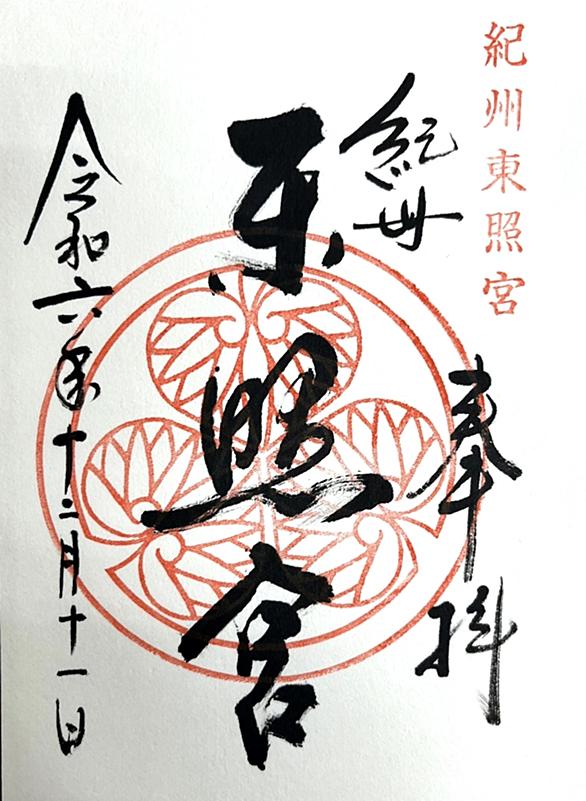 紀州東照宮
奉拝
紀州
東照宮
令和六年十二月十一日